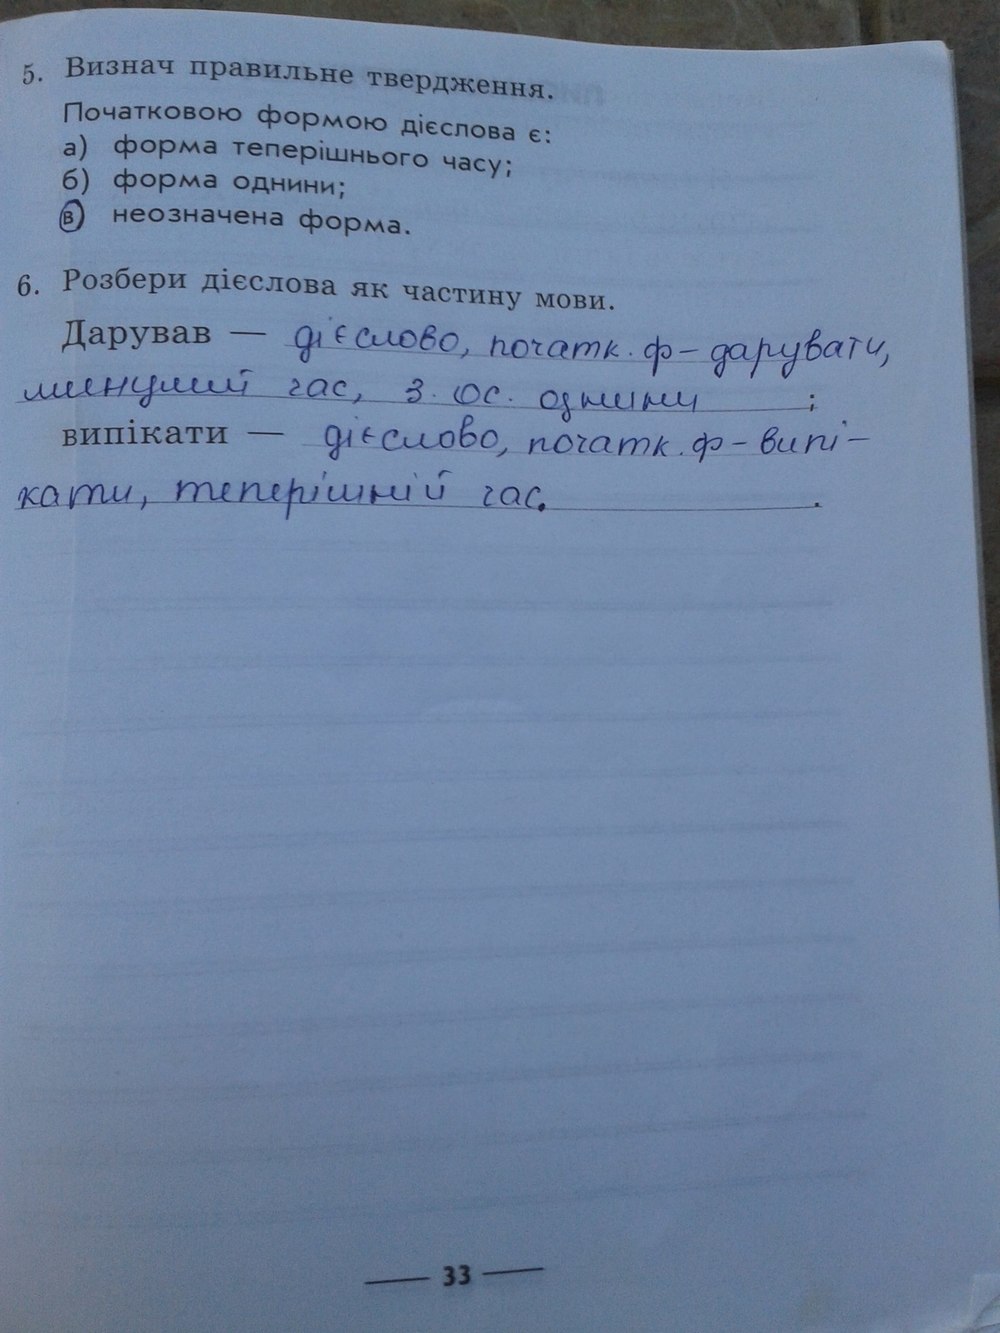 5. Визнач правильне твердження.
Початковою формою дієслова є:
а) форма теперішнього часу;
б) форма однини;
в) неозначена форма.
6. Розбери дієслова як частину мови.
Дарував — дієслово, початк. ф – дарувати,
минулий час, 3. ос. однини ;
випікати — дієслово, початк. ф – випі-
кати, теперішній час. .
— 33 —